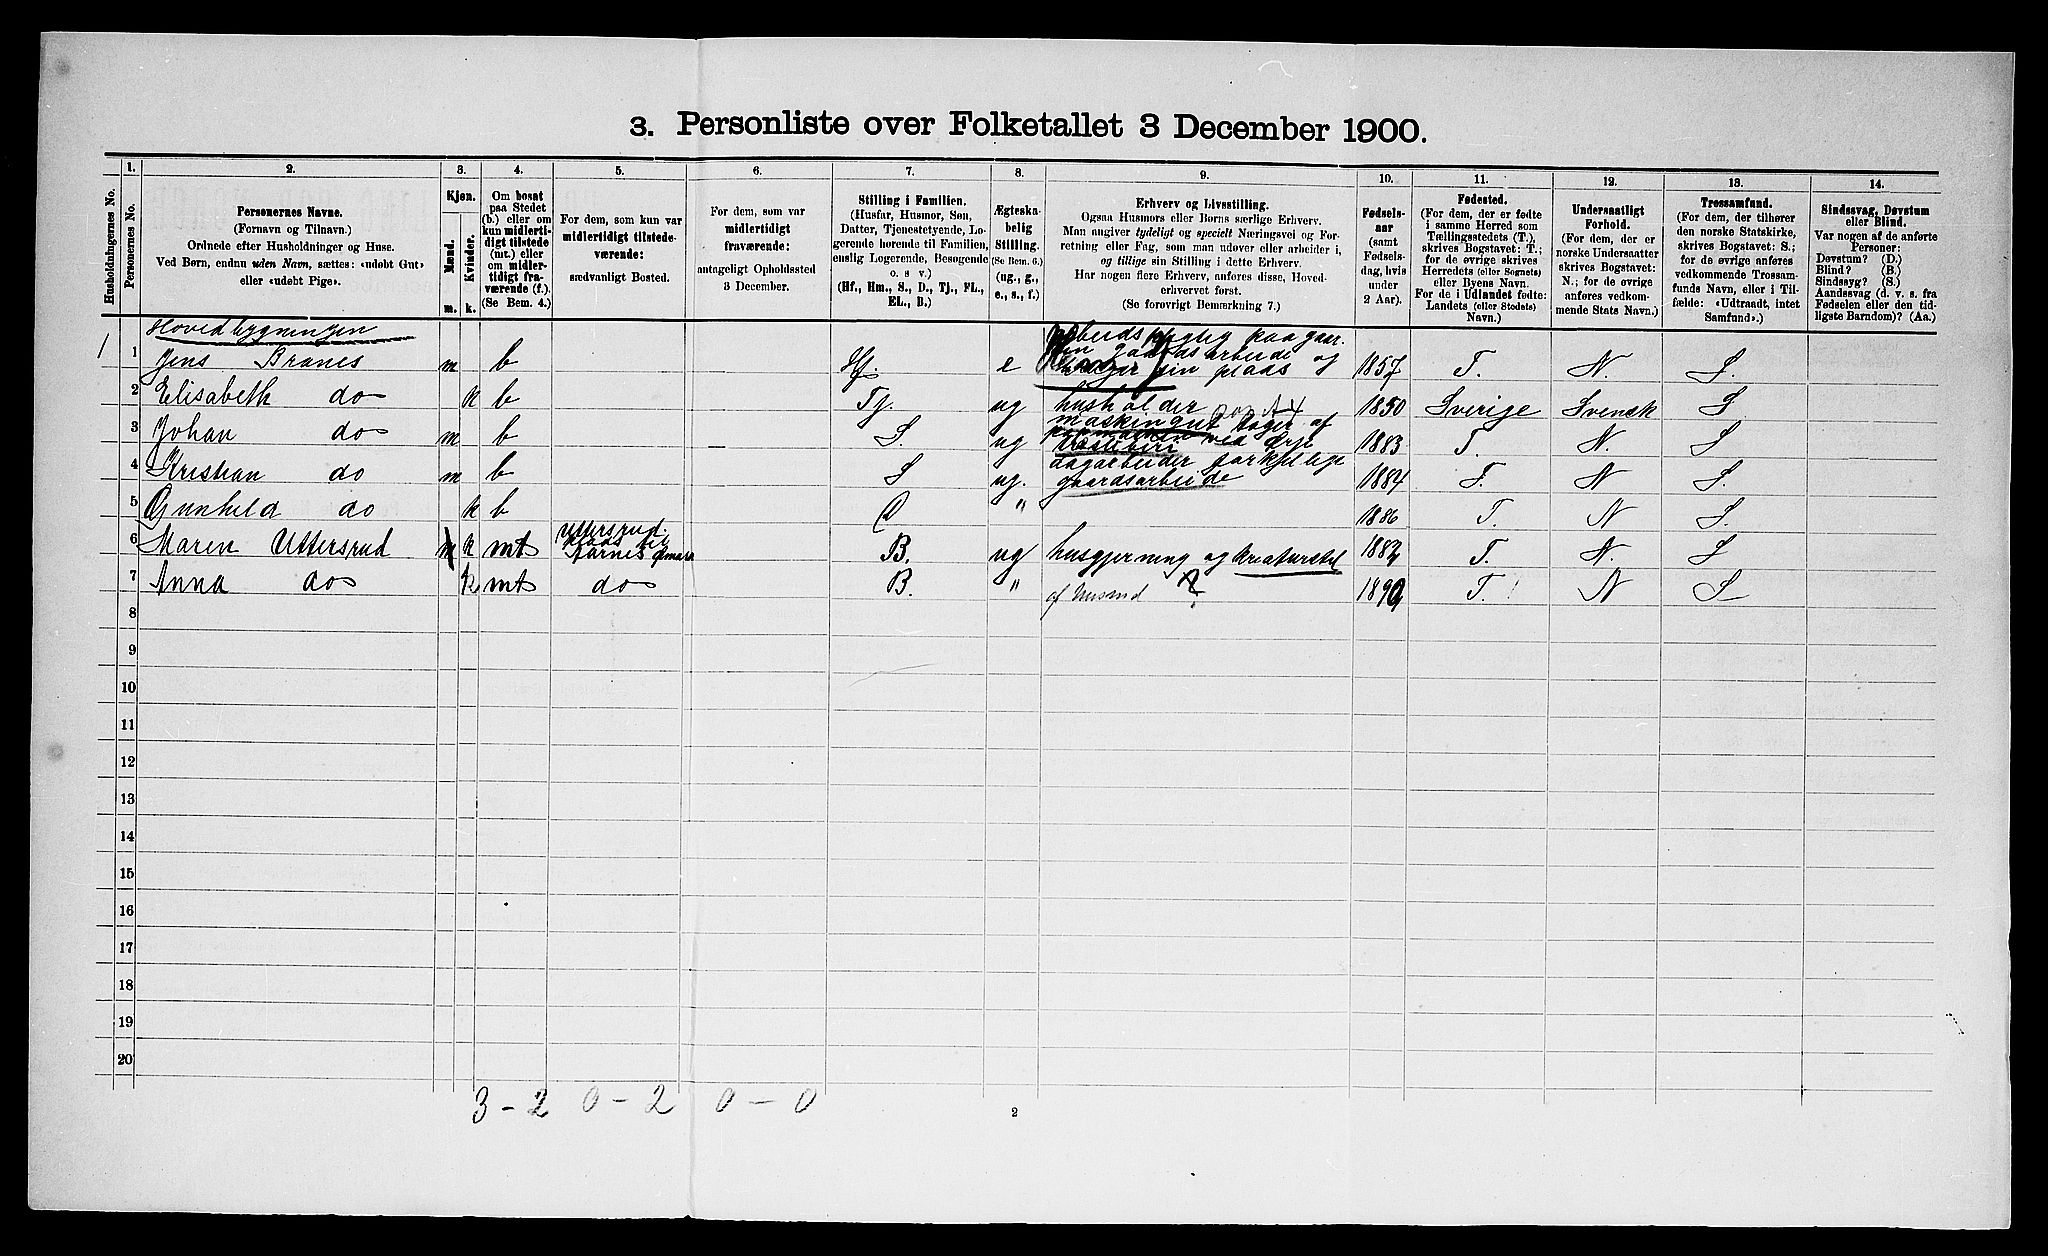 3. Personliste over Folketallet 3 December 1900.
Husholdningernes No.
1.
Personernes No.
2.
Personernes Navne.
(Fornavn og Tilnavn.)
Ordnede efter Husholdninger og Huse.
Ved Børn, endnu uden Navn, sættes: «udøbt Gut»
eller «udøbt Pige».
3.
Kjøn.
Mænd.
Kvinder.
m.
k.
4.
Om bosat
paa Stedet
(b.) eller om
kun midlerti-
digt tilstede
(mt.) eller
om midler-
tidigt fra-
værende (f.).
(Se Bem. 4.)
5.
For dem, som kun var
midlertidigt tilstede-
værende:
sædvanligt Bosted.
6.
For dem, som var
midlertidigt
fraværende:
antageligt Opholdssted
3 December.
7.
Stilling i Familien.
(Husfar, Husmor, Søn,
Datter, Tjenestetyende, Lo-
gerende hørende til Familien,
enslig Logerende, Besøgende
o. s v.)
(Hf., Hm., S., D., Tj., FL.,
EL., B.)
8.
Ægteska-
belig
Stilling.
(Se Bem. 6.)
(ug., g.,
e., s., f.)
9.
Erhverv og Livsstilling.
Ogsaa Husmors eller Børns særlige Erhverv.
Man angiver tydeligt og specielt Næringsvei og For-
retning eller Fag, som man udøver eller arbeider i,
og tillige sin Stilling i dette Erhverv.
Har nogen flere Erhverv, anføres disse, Hoved-
erhvervet først.
(Se forøvrigt Bemærkning 7.)
10.
Fødsels-
aar
(samt
Fødsels-
dag, hvis
under
2 Aar).
11.
Fødested.
(For dem, der er fødte
i samme Herred som
Tællingsstedets (T.),
skrives Bogstavet: T.;
for de øvrige skrives
Herredets (eller Sognets)
eller Byens Navn.
For de i Udlandet fødte:
Landets (eller Stedets)
Navn.)
12.
Undersaatligt
Forhold.
(For dem, der er
norske Undersaatter
skrives Bogstavet:
N.; for de øvrige
anføres vedkom-
mende Stats Navn.)
13.
Trossamfund.
(For dem, der tilhører
den norske Statskirke,
skrives Bogstavet: S.;
for de øvrige anføres
vedkommende Trossam-
funds Navn, eller i Til-
fælde: «Udtraadt, intet
Samfund».)
14.
Sindssvag, Døvstum
eller Blind.
Var nogen af de anførte
Personer:
Døvstum? (D.)
Blind? (B.)
Sindssyg? (S.)
Aandssvag (d. v. s. fra
Fødselen eller den tid-
ligste Barndom)? (Aa.)
Hovedbygningen
1 1 Jens Branes m b Hf. e paa gaar. gaardsarbeide og sin plads 1857 T. N. S.
2 Elisabeth do k b Tj. ug husholder 1850 Sverige Svensk S
3 Johan do m b S. ug maskingut ved Ørje 1883 T. N. S
4 Kristian do m b S ug. dagarbeider gaardsarbeide 1884 T. N S.
5 Gunhild do k b D " 1886 T. N S.
6 Maren Uttersrud k mt Uttersrud. plads til B. ug husgjerning og kreaturstel 1882 T. N. S
7 Anna do k mt do B. " af husmd ? 1890 T. N S
8
9
10
11
12
13
14
15
16
17
18
19
20
3 - 2 0 - 2 0 - 0
2